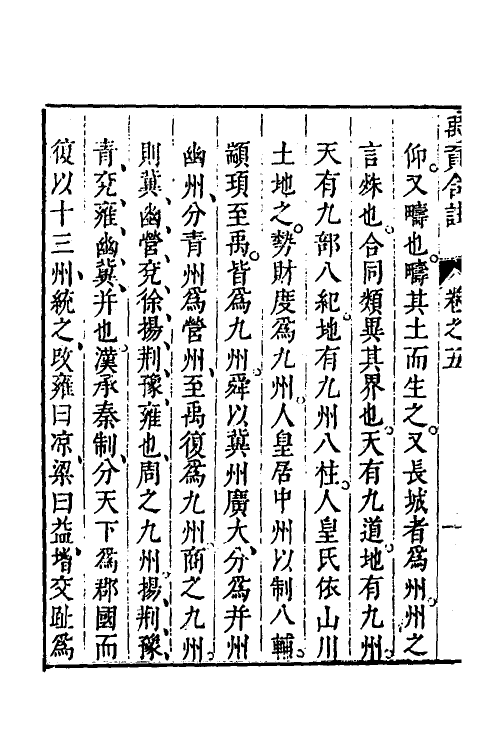 禹貢合註　卷之五　一
仰又疇也疇其土而生之又長城者爲州州之
言殊也合同類異其界也天有九道地有九州
天有九部八紀地有九州八柱人皇氏依山川
土地之勢財度爲九州人皇居中州以制八輔
顓頊至禹皆爲九州舜以冀州廣大分爲并州
幽州分青州爲營州至禹復爲九州商之九州
則冀幽營兗徐揚荆豫雍也周之九州揚荆豫
青兗雍幽冀并也漢承秦制分天下爲郡國而
復以十三州統之改雍曰凉梁曰益增交趾爲